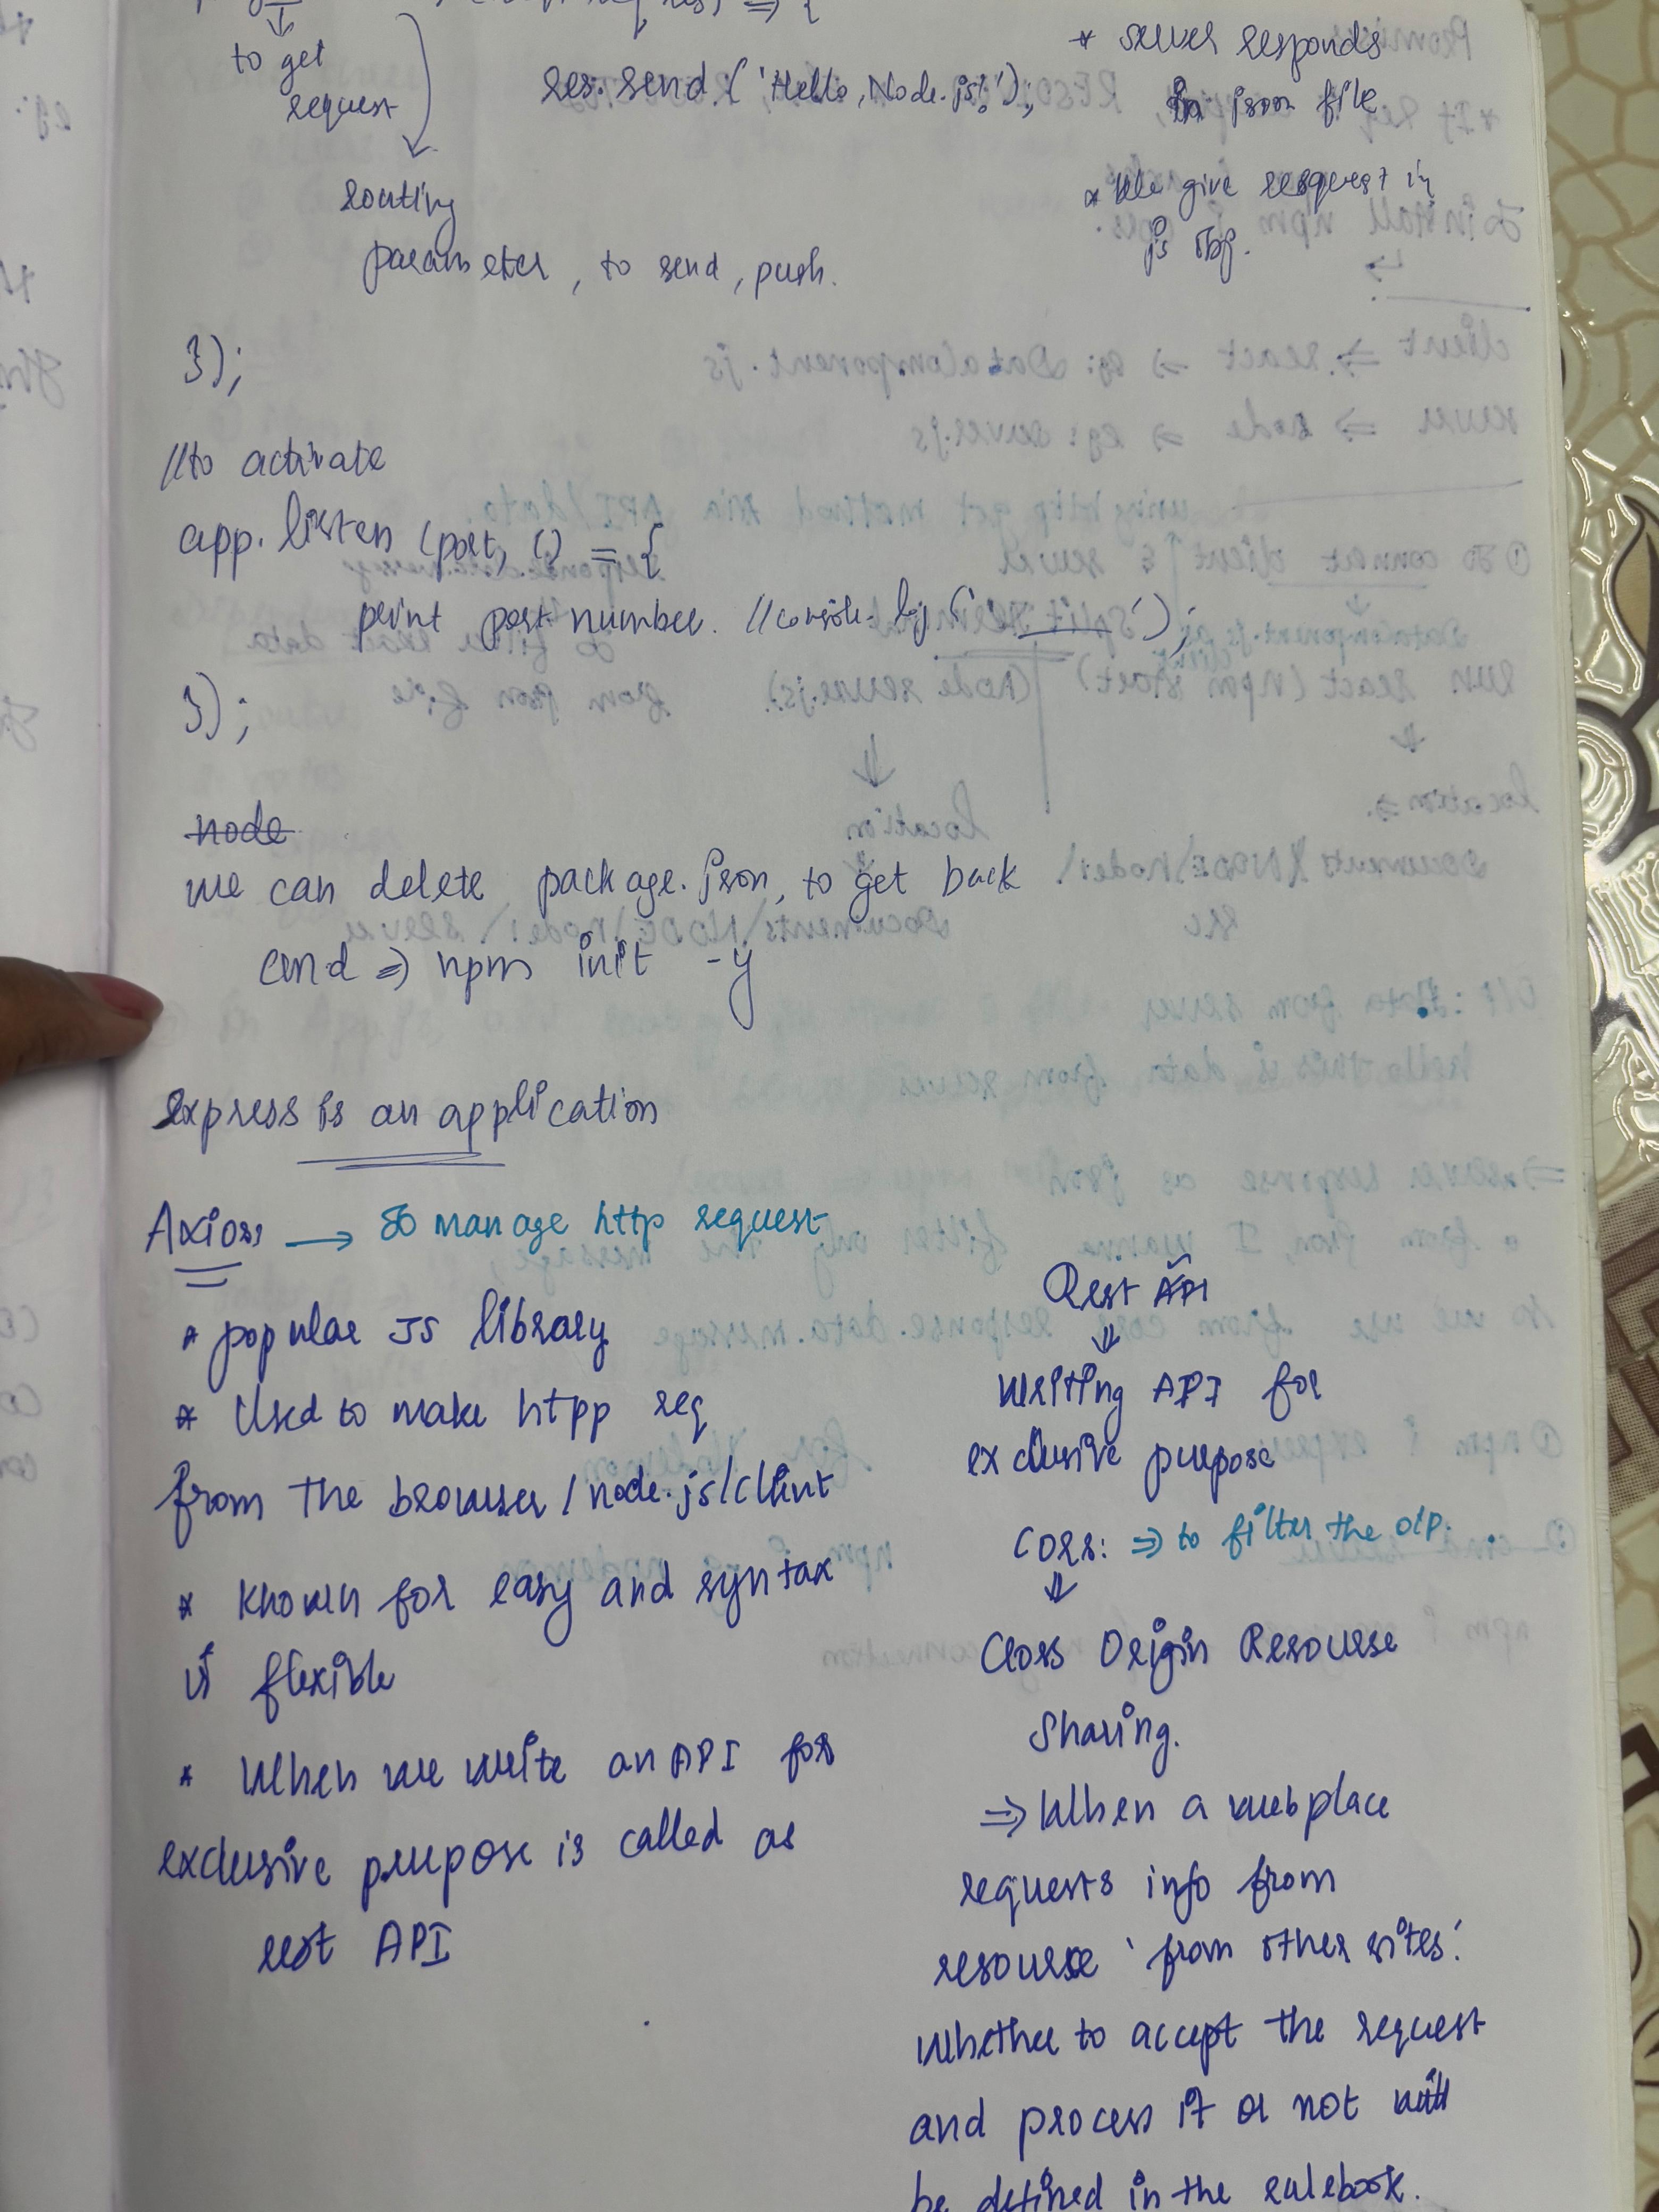 to get
request
res.send('Hello, Node.js!');
* server responds
in json file
* We give resquest in
js obj.
routing
parameter, to send, push.
});
//to activate
app.listen (port, () = {
print port number. //console.log(' ');
});
node
we can delete package.json, to get back
cmd => npm init -y
express is an application
Axioss → To manage http request
* popular JS library
* Used to make htpp req
from the browser/node.js/client
* known for easy and syntax
is flexible
* When we write an API for
exclusive purpose is called as
rest API
Rest API
⇓
Writing API for
exclusive purpose
CORR: => to filter the o/p.
⇓
Cross Origin Resourse
Sharing.
=> When a webplace
requests info from
resourse 'from other sites.'
Whether to accept the request
and process it or not will
be defined in the rulebook.